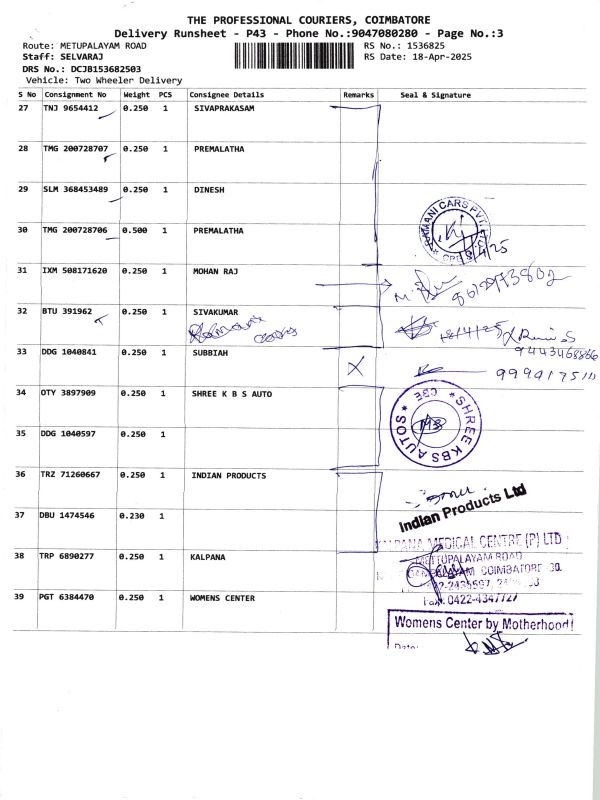 THE PROFESSIONAL COURIERS, COIMBATORE
Delivery Runsheet - P43 - Phone No.:9047080280 - Page No.:3
Route: METUPALAYAM ROAD RS No.: 1536825
Staff: SELVARAJ RS Date: 18-Apr-2025
DRS No.: DCJB153682503
Vehicle: Two Wheeler Delivery
S No Consignment No Weight PCS Consignee Details Remarks Seal & Signature
27 TNJ 9654412 0.250 1 SIVAPRAKASAM
28 TMG 200728707 0.250 1 PREMALATHA
29 SLM 368453489 0.250 1 DINESH
30 TMG 200728706 0.500 1 PREMALATHA
RAMANI CARS PVT. LTD
CBE
31 IXM 508171620 0.250 1 MOHAN RAJ
32 BTU 391962 0.250 1 SIVAKUMAR
18/4/25
33 DDG 1040841 0.250 1 SUBBIAH X
9443468866
34 OTY 3897909 0.250 1 SHREE K B S AUTO
SHREE KBS AUTOS
CBE
35 DDG 1040597 0.250 1
36 TRZ 71260667 0.250 1 INDIAN PRODUCTS
Indian Products Ltd
37 DBU 1474546 0.230 1
KALPANA MEDICAL CENTRE (P) LTD
METTUPALAYAM ROAD
38 TRP 6890277 0.250 1 KALPANA
COIMBATORE 30.
Fax: 0422-4347727
39 PGT 6384470 0.250 1 WOMENS CENTER
Womens Center by Motherhood
Date: